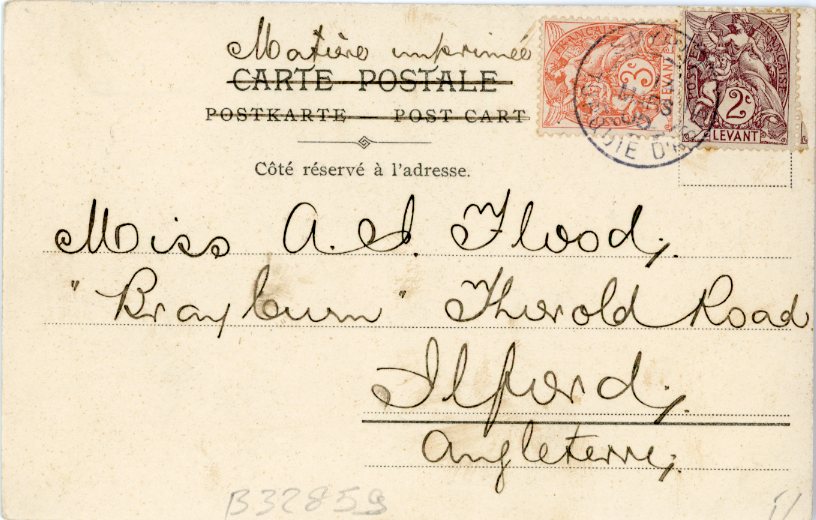 Matière imprimée
CARTE POSTALE
POSTKARTE — POST CART
Côté réservé à l'adresse.
3c
LEVANT
POSTES FRANÇAISES
2c
LEVANT
Miss A. I. Flood,
"Brayburn" Thorold Road
Ilford,
Angleterre,
B32859